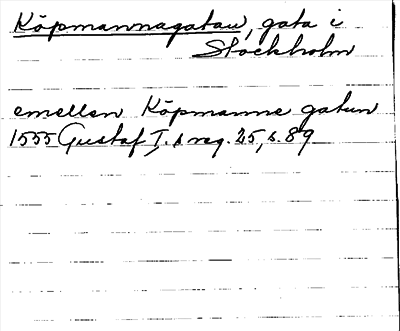 Köpmannagatan, gata i
Stockholm
emellen Köpmanne gatun
1555 Gustaf I.s reg. 25, s. 89